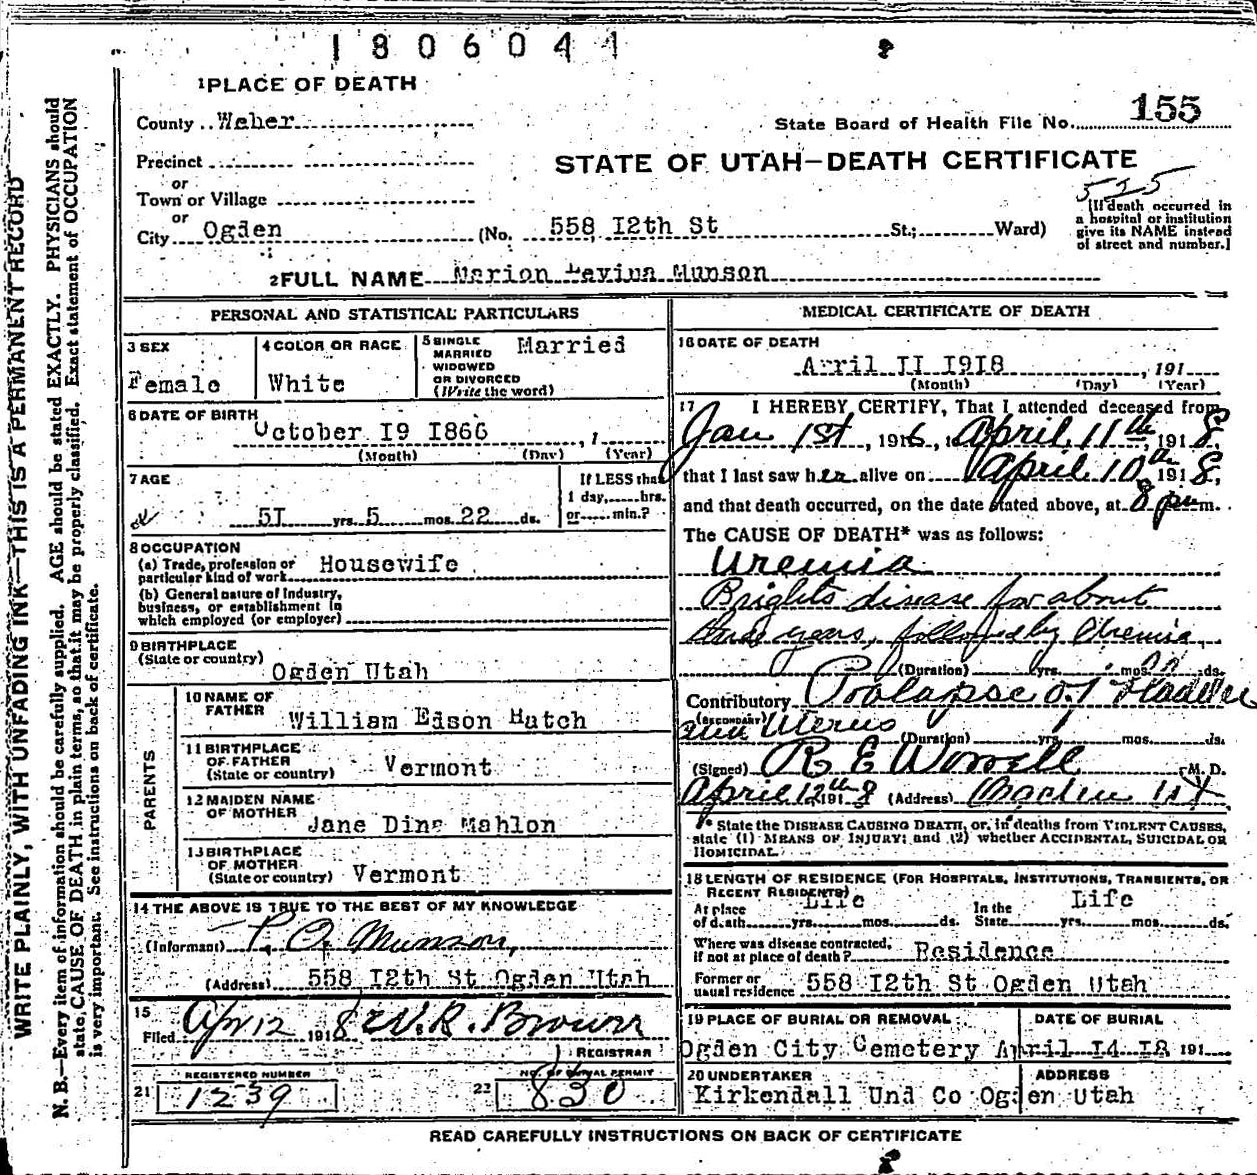 1806041
1 PLACE OF DEATH
County Weber
State Board of Health File No. 155
Precinct
STATE OF UTAH—DEATH CERTIFICATE
or
Town or Village
525
or
City Ogden (No. 558 I2th St St.; Ward)
[If death occurred in
a hospital or institution
give its NAME instead
of street and number.]
2 FULL NAME Marion Levina Munson
PERSONAL AND STATISTICAL PARTICULARS
3 SEX
Female
4 COLOR OR RACE
White
5 SINGLE
MARRIED
WIDOWED
OR DIVORCED
(Write the word)
Married
6 DATE OF BIRTH
October I9 I866 , 1
(Month) (Day) (Year)
7 AGE
5I yrs. 5 mos. 22 ds.
If LESS than
1 day, hrs.
or min.?
8 OCCUPATION
(a) Trade, profession or
particular kind of work Housewife
(b) General nature of Industry,
business, or establishment in
which employed (or employer)
9 BIRTHPLACE
(State or country)
Ogden Utah
PARENTS
10 NAME OF
FATHER
William Edson Hatch
11 BIRTHPLACE
OF FATHER
(State or country)
Vermont
12 MAIDEN NAME
OF MOTHER
Jane Dine Mahlon
13 BIRTHPLACE
OF MOTHER
(State or country) Vermont
14 THE ABOVE IS TRUE TO THE BEST OF MY KNOWLEDGE
(Informant) P. O. Munson,
(Address) 558 I2th St Ogden Utah
15
Filed Apr 12 1918 W. R. Brown
REGISTRAR
21 REGISTERED NUMBER
1239
22 NO. OF BURIAL PERMIT
830
MEDICAL CERTIFICATE OF DEATH
16 DATE OF DEATH
April II I9I8 , 191
(Month) (Day) (Year)
17 I HEREBY CERTIFY, That I attended deceased from
Jan 1st , 1916, April 11th, 1918,
that I last saw her alive on April 10th 1918,
and that death occurred, on the date stated above, at 8 pm m.
The CAUSE OF DEATH* was as follows:
Uremia
Brights disease for about
three years, followed by Uremia
(Duration) yrs. mos. ds.
Contributory Prolapse of Bladder
(SECONDARY)
and Uterus
(Duration) yrs. mos. ds.
(Signed) R E Worrell M. D.
April 12th 1918 (Address)
* State the DISEASE CAUSING DEATH, or, in deaths from VIOLENT CAUSES,
state (1) MEANS OF INJURY; and (2) whether ACCIDENTAL, SUICIDAL OR
HOMICIDAL.
18 LENGTH OF RESIDENCE (FOR HOSPITALS, INSTITUTIONS, TRANSIENTS, OR
RECENT RESIDENTS)
At place
of death Life yrs. mos. ds.
In the
State Life yrs. mos. ds.
Where was disease contracted,
if not at place of death? Residence
Former or
usual residence 558 I2th St Ogden Utah
19 PLACE OF BURIAL OR REMOVAL
DATE OF BURIAL
Ogden City Cemetery April I4 I8 191
20 UNDERTAKER
ADDRESS
Kirkendall Und Co Ogden Utah
READ CAREFULLY INSTRUCTIONS ON BACK OF CERTIFICATE
WRITE PLAINLY, WITH UNFADING INK—THIS IS A PERMANENT RECORD
N. B.—Every item of information should be carefully supplied. AGE should be stated EXACTLY. PHYSICIANS should
state CAUSE OF DEATH in plain terms, so that it may be properly classified. Exact statement of OCCUPATION
is very important. See instructions on back of certificate.